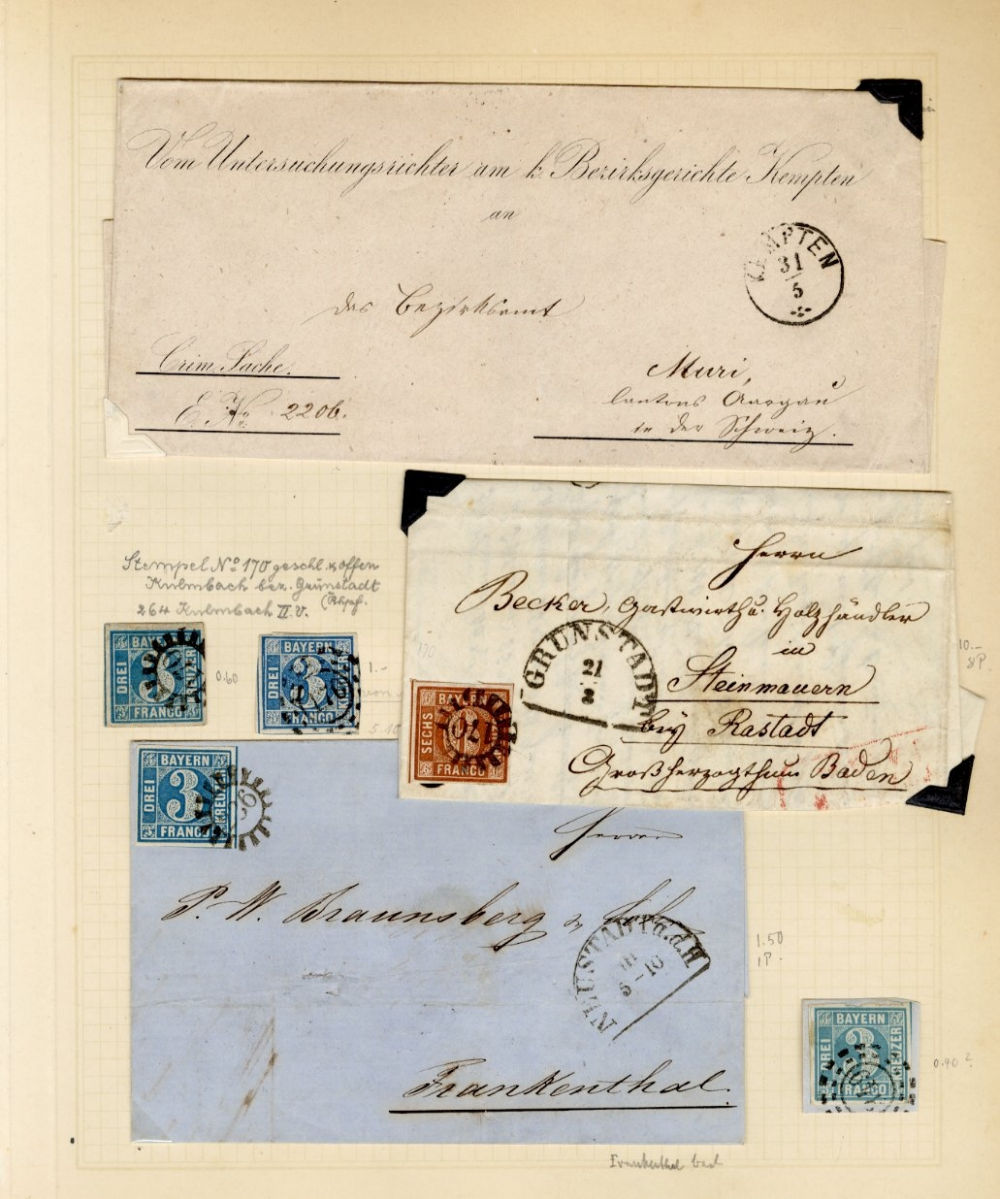 Vom Untersuchungsrichter am k. Bezirksgerichte Kempten
an
das Bezirksamt
KEMPTEN
31
5
Crim. Sache.
E. No. 2206.
Muri,
Cantons Aargau
in der Schweiz.
Stempel No 170 geschl. & offen
Kulmbach bez. Grünstadt
(Rhpf.
264 Kulmbach II v.
BAYERN
DREI
3
KREUZER
FRANCO
0.60
BAYERN
DREI
3
KREUZER
FRANCO
1.–
Herrn
Becker, Gastwirth u. Holzhändler
in
Steinmauern
bey Rastadt
Großherzogthum Baden
GRÜNSTADT
21
170
BAYERN
SECHS
FRANCO
170
10.–
8P.
BAYERN
DREI
3
KREUZER
FRANCO
Herrn
P. W. Braunsberg
NEUSTADT a.d.H
III
5–10
Frankenthal.
1.50
1P.
BAYERN
DREI
3
KREUZER
FRANCO
0.40 ?
Frankenthal